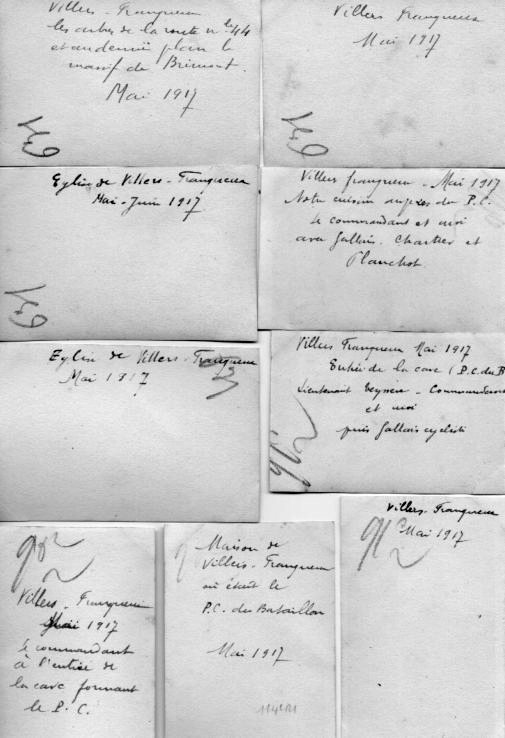 Villers - Franqueux
les arbres de la route nle 44
et au dernier plan le
massif de Brimont.
Mai 1917
Villers Franqueux
Mai 1917
Eglise de Villers - Franqueux
Mai - Juin 1917
Villers franqueux - Mai 1917
Notre cuisine auprès du P.C.
le commandant et moi
avec Gallais, Chartier et
Planchot.
Eglise de Villers - Franqueux
Mai 1917
Villers Franqueux Mai 1917
Entrée de la cave (P.C. du B
Lieutenant - Commandant
et moi
puis Gallais cycliste
Villers - Franqueux
Mai 1917
le commandant
à l'entrée de
la cave formant
le P.C.
Maison de
Villers - Franqueux
où était le
P.C. du Bataillon
Mai 1917
Villers - Franqueux
Mai 1917